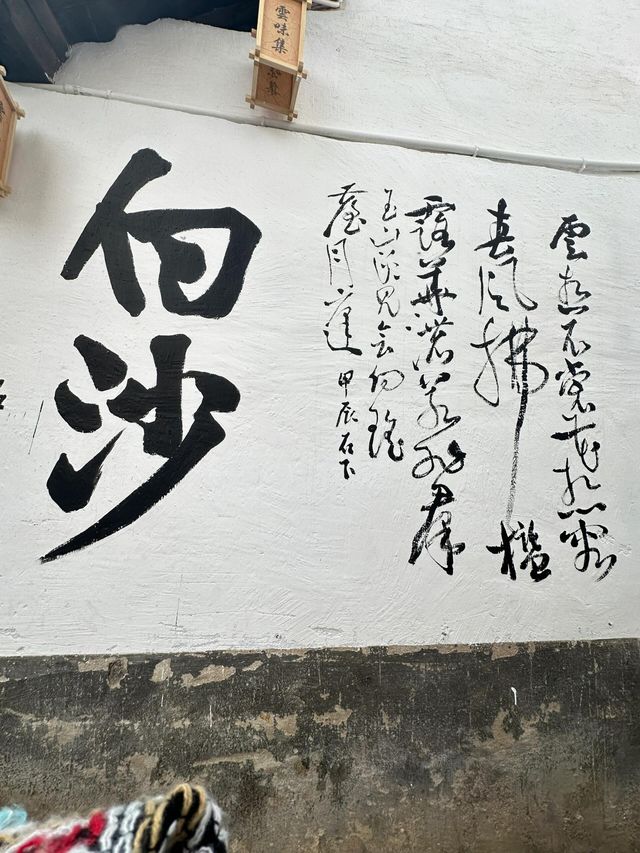 雲味集
雲想衣裳花想容
春風拂檻
露華濃若非群
玉山頭見會向瑤
臺月下逢 甲辰石下
白沙